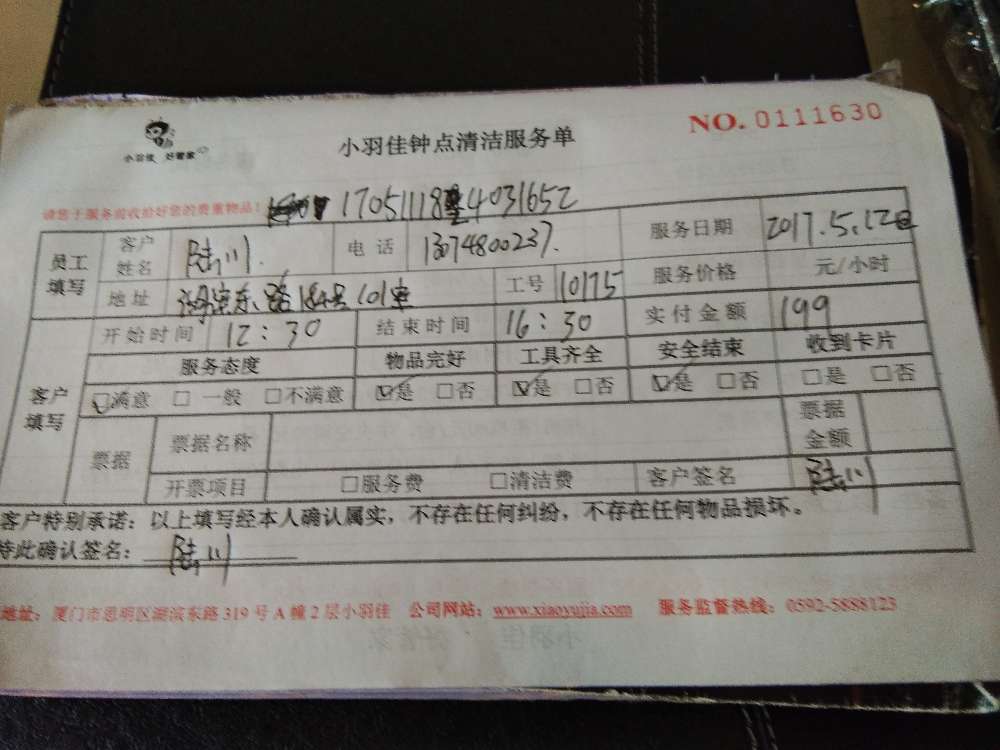 小羽佳 好管家
小羽佳钟点清洁服务单
NO. 0111630
请您于服务前收拾好您的贵重物品! 170511184031652
员工填写 客户姓名 陆川 电话 13074800237. 服务日期 2017.5.12
地址 湖滨东路184号101 工号 10175 服务价格 元/小时
客户填写 开始时间 12:30 结束时间 16:30 实付金额 199
服务态度 物品完好 工具齐全 安全结束 收到卡片
☑满意 □一般 □不满意 ☑是 □否 ☑是 □否 ☑是 □否 □是 □否
票据 票据名称 票据金额
开票项目 □服务费 □清洁费 客户签名 陆川
客户特别承诺:以上填写经本人确认属实,不存在任何纠纷,不存在任何物品损坏。
特此确认签名: 陆川
地址:厦门市思明区湖滨东路319号A幢2层小羽佳 公司网站:www.xiaoyujia.com 服务监督热线:0592-5888123